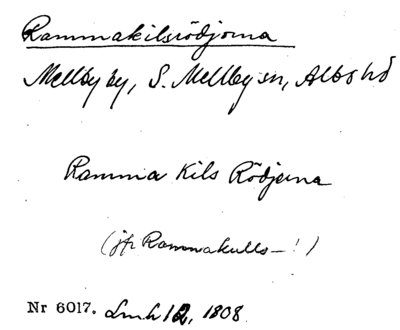 Rammakilsrödjorna
Mellby by, S. Mellby sn, Albo hd
Ramma Kils Rödjerna
(jfr Rammakulls–!)
Nr 6017. Lmh 12, 1808.